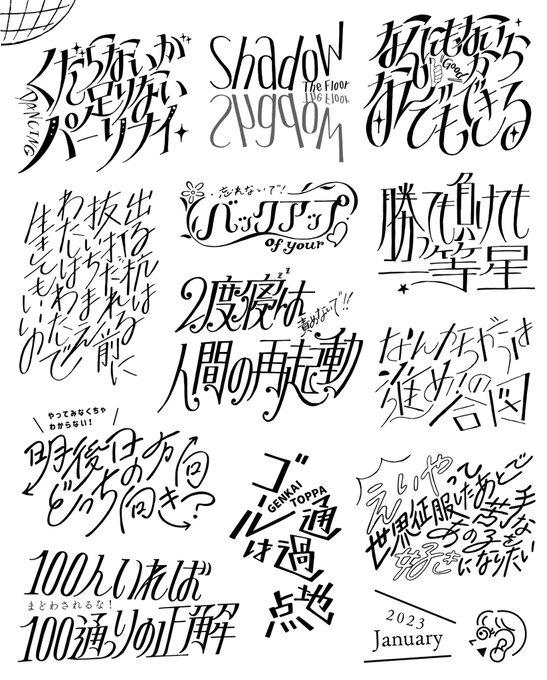 くだらないが
足りない
パーリナイ
DANCING
Shadow
The Floor
なんにもないから
Good
なんでもできる
出る杭は
抜いだまれる前に
わたしはわたしで
生してもいいの
忘れないで!
バックアップ
of your
勝っても負けても
一等星
2度寝は
zz
責めないで!!
人間の再起動
なんかちがうは
進め!の
合図
やってみなくちゃ
わからない!
明後日の方向
どっちの向き?
ゴールは
GENKAI
TOPPA
通過
地点
えいやって
世界征服したあとで
苦手な
あの子を
好きになりたい
100人いれば
まどわされるな!
100通りの正解
2023
January